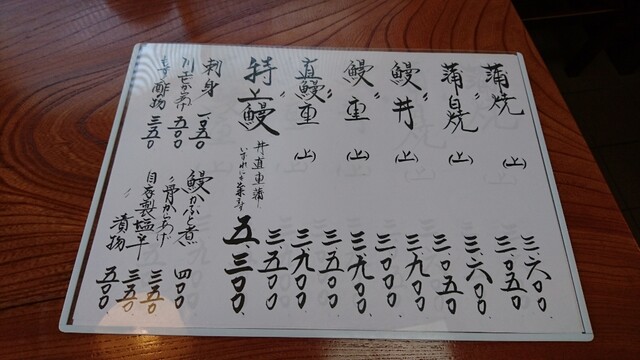 蒲焼 〃(上) 三、六〇〇
三、〇五〇
蒲白焼 〃(上) 三、六〇〇
三、〇五〇
鰻丼 〃(上) 三、九〇〇
三、〇〇〇
鰻重 〃(上) 三、九〇〇
三、五〇〇
直鰻重 〃(上) 三、九〇〇
三、五〇〇
特上鰻 丼直重蒲 五、三〇〇
刺身 一、〇五〇
五〇〇
酢の物 三五〇
鰻かぶと煮 四〇〇
〃骨からあげ 三五〇
自家製塩辛 三五〇
〃漬物 五〇〇